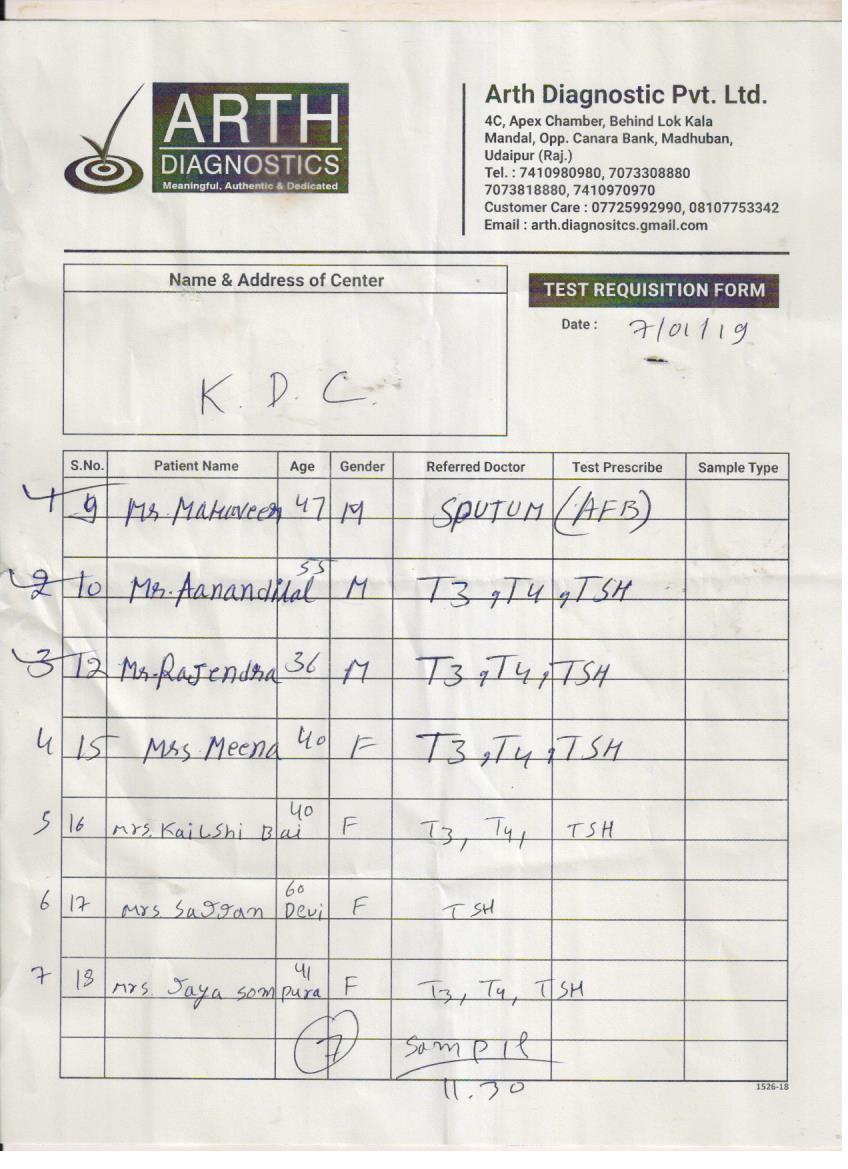 ARTH
DIAGNOSTICS
Meaningful, Authentic & Dedicated
Arth Diagnostic Pvt. Ltd.
4C, Apex Chamber, Behind Lok Kala
Mandal, Opp. Canara Bank, Madhuban,
Udaipur (Raj.)
Tel. : 7410980980, 7073308880
7073818880, 7410970970
Customer Care : 07725992990, 08107753342
Email : arth.diagnositcs.gmail.com
Name & Address of Center
K. D. C.
TEST REQUISITION FORM
Date : 7/01/19
S.No. Patient Name Age Gender Referred Doctor Test Prescribe Sample Type
1 9 Mr. Mahaveer 47 M SPUTUM (AFB)
2 10 Mr. Aanandilal 55 M T3, T4, TSH
3 12 Mr. Rajendra 36 M T3, T4, TSH
4 15 Mrs Meena 40 F T3, T4, TSH
5 16 Mrs. Kailshi Bai 40 F T3, T4, TSH
6 17 Mrs Sajjan Devi 60 F TSH
7 18 Mrs. Jaya Sompura 41 F T3, T4, TSH
7 Sampil
11.30
1526-18